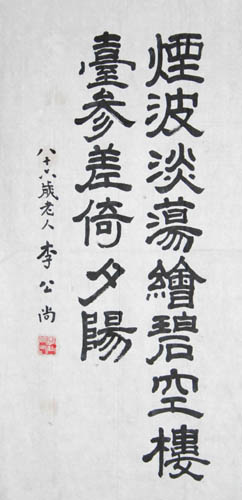 煙波淡蕩繪碧空樓
臺参差倚夕陽
八十六歲老人李公尚